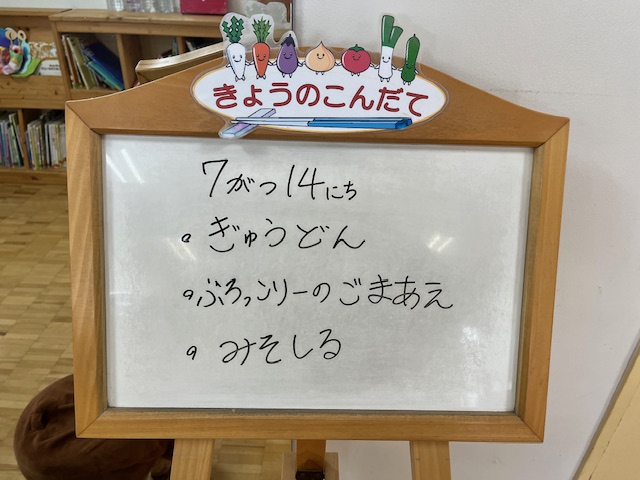 きょうのこんだて
7がつ14にち
。ぎゅうどん
。ぶろっこりーのごまあえ
。みそしる